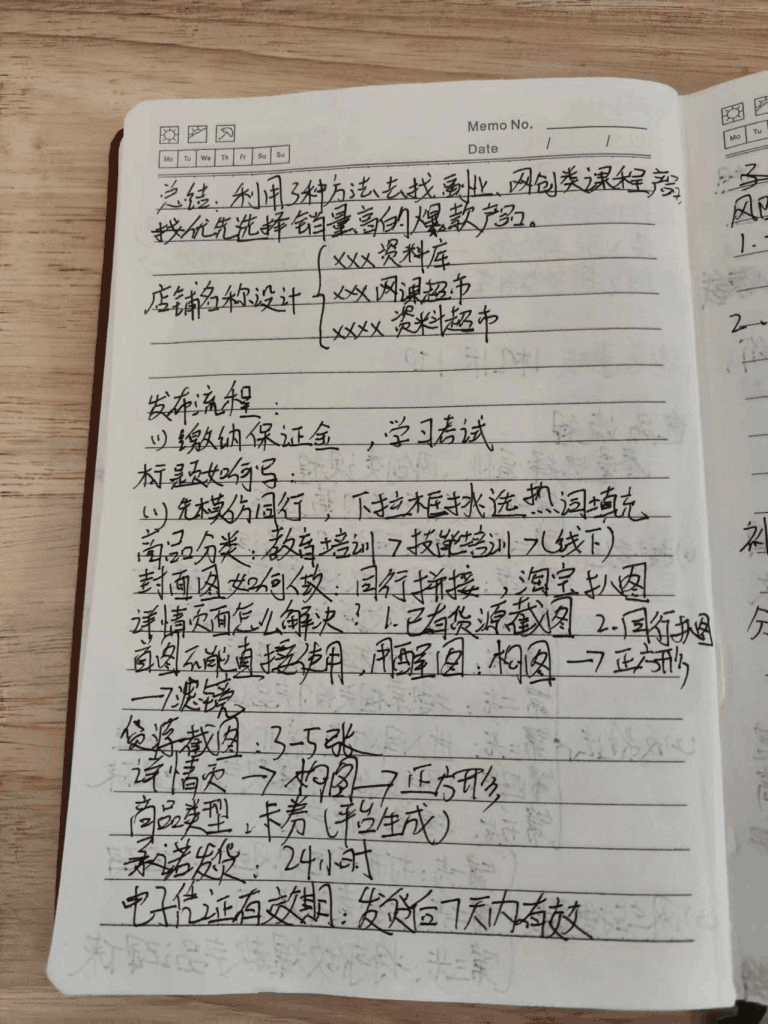 Memo No.
Mo Tu We Th Fr Sa Su
Date / /
总结：利用3种方法去找副业、网创类课程,产品,
找优先选择销量高的爆款产品。
店铺名称设计
xxx资料库
xxx网课超市
xxxx 资料超市
发布流程：
(1)缴纳保证金，学习考试
标题如何写：
(1)先模仿同行，下拉框挑选热词填充
商品分类：教育培训>技能培训>(线下)
封面图如何做：同行拼接，淘宝扒图
详情页面怎么解决？1.已有货源截图 2.同行扒图
首图不能直接使用,用醒图：构图→正方形
→滤镜
货源截图：3-5张
详情页→构图→正方形
商品类型：卡券(平台生成)
承诺发货：24小时
电子凭证有效期：发货后7天内有效
Mo Tu
1.
2.
补
分